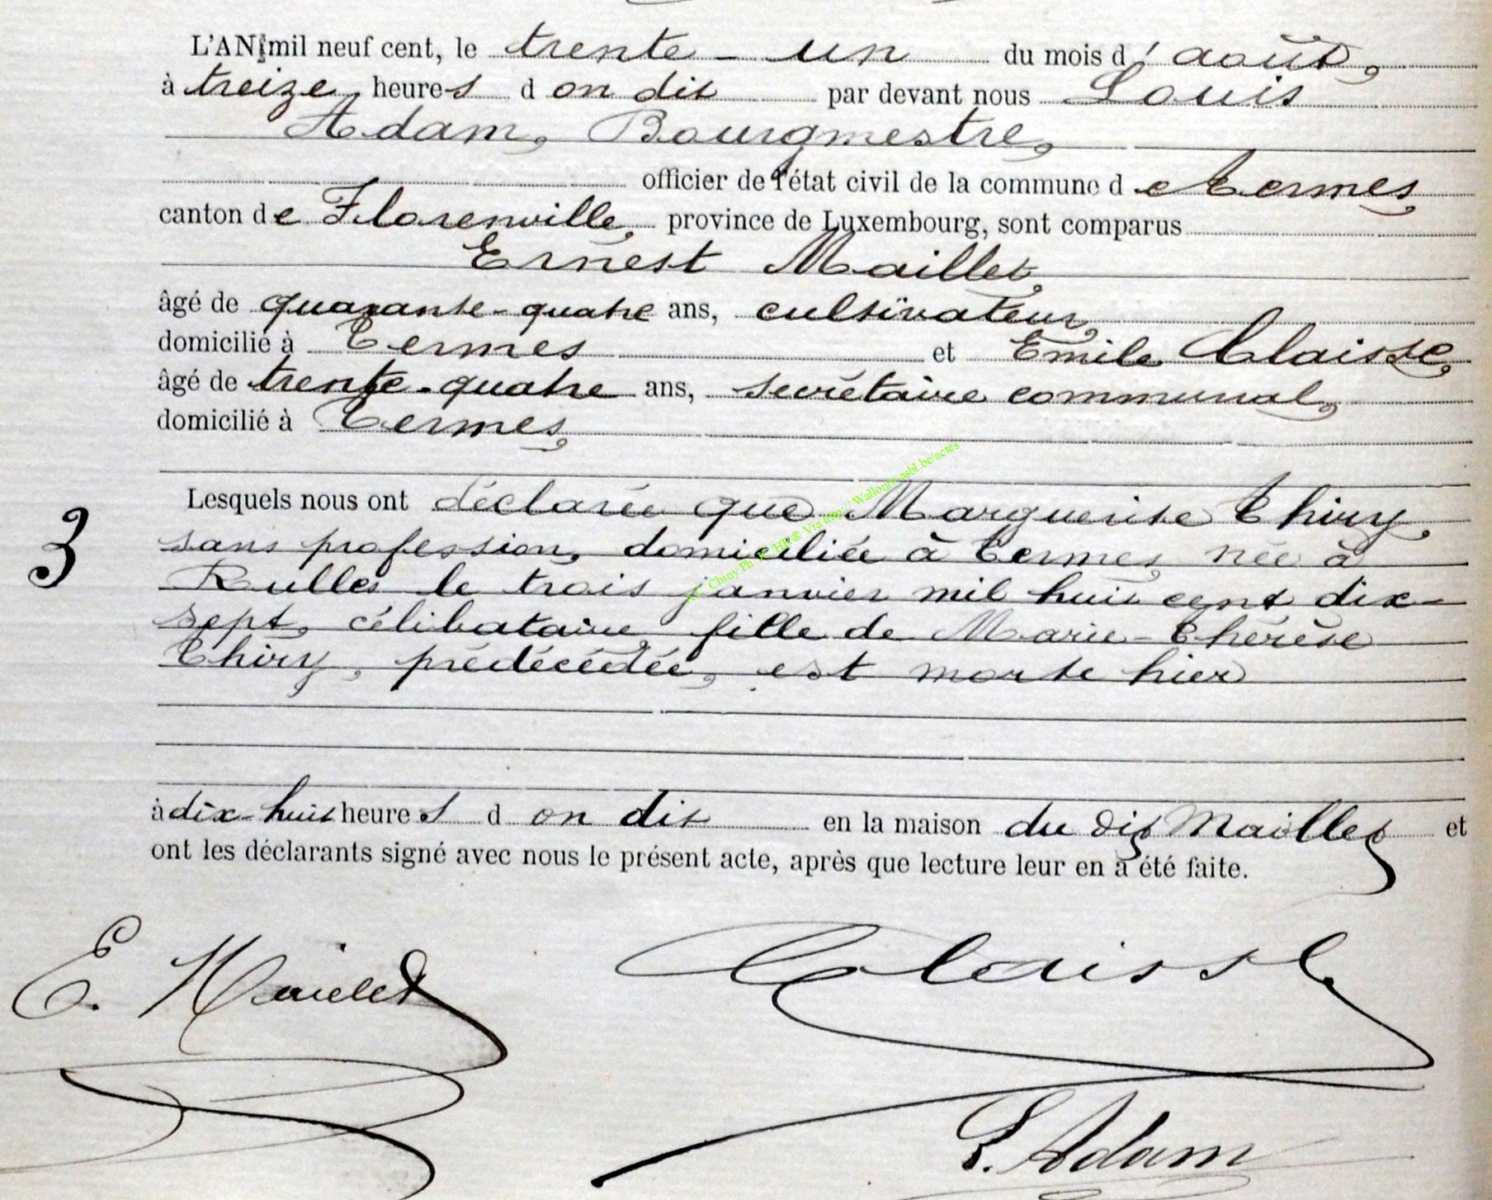 L'AN mil neuf cent, le trente-un du mois d'août,
à treize heures d on dit par devant nous Louis
Adam, Bourgmestre,
officier de l'état civil de la commune de Termes,
canton de Florenville, province de Luxembourg, sont comparus
Ernest Maillet,
âgé de quarante-quatre ans, cultivateur,
domicilié à Termes et Emile Claisse,
âgé de trente-quatre ans, secrétaire communal,
domicilié à Termes,
Lesquels nous ont déclarée que Marguerite Thiry,
3
sans profession, domiciliée à Termes, née à
Rulles le trois janvier mil huit cent dix-
sept, célibataire, fille de Marie-Thérèse
Thiry, prédécédée, est morte hier
à dix-huit heures d on dit en la maison du dit Maillet et
ont les déclarants signé avec nous le présent acte, après que lecture leur en a été faite.
E. Maillet Claisse
L. Adam